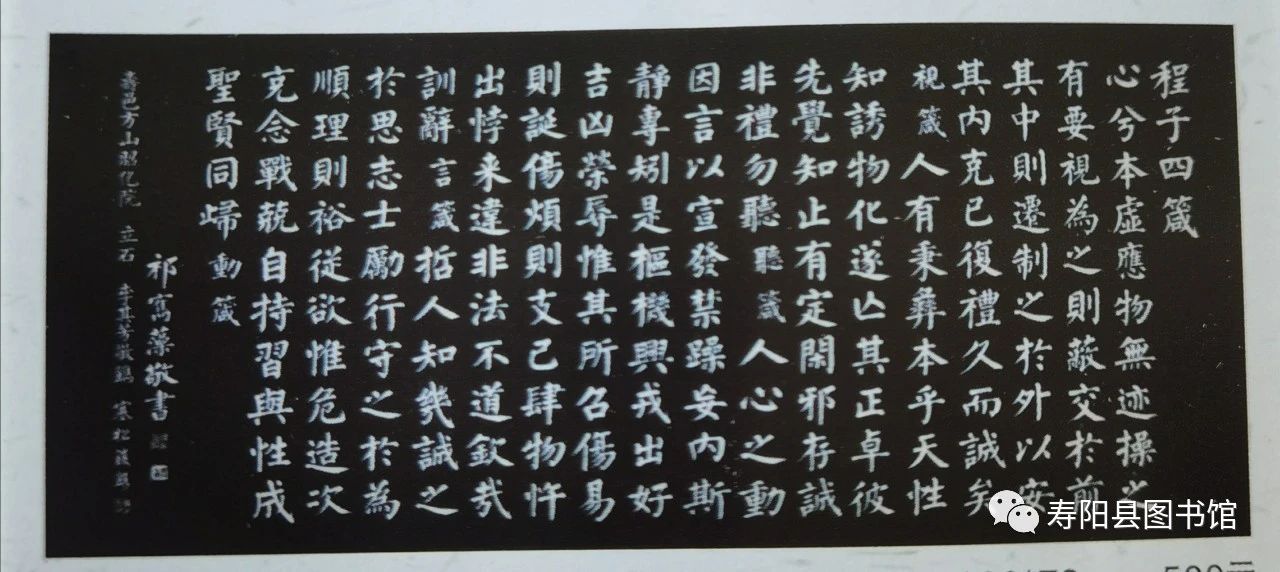 程子四箴
心兮本虛應物無迹操之
有要視為之則蔽交於前
其中則遷制之於外以安
其内克己復禮久而誠矣
視箴人有秉彝本乎天性
知誘物化遂亾其正卓彼
先覺知止有定閑邪存誠
非禮勿聽聽箴人心之動
因言以宣發禁躁妄内斯
靜專矧是樞機興戎出好
吉凶榮辱惟其所召傷易
則誕傷煩則支己肆物忤
出悖来違非法不道欽哉
訓辭言箴哲人知幾誠之
於思志士勵行守之於為
順理則裕從欲惟危造次
克念戰兢自持習與性成
聖賢同歸動箴
祁寯藻敬書
壽邑方山昭化院立石
寿阳县图书馆